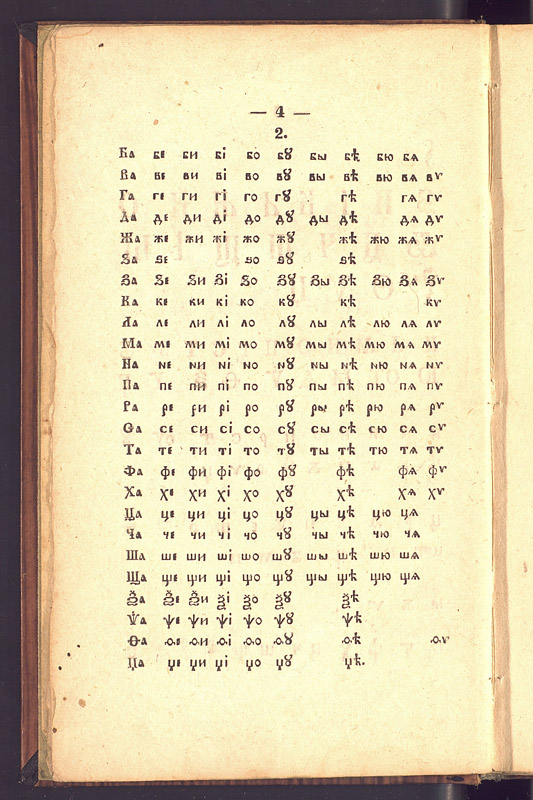 — 4 —
2.
Ба бе би бі бо бꙋ бы бѣ бю бѧ
Ва ве ви ві во вꙋ вы вѣ вю вѧ вѵ
Га ге ги гі го гꙋ гѣ гѧ гѵ
Да де ди ді до дꙋ ды дѣ дѧ дѵ
Жа же жи жі жо жꙋ жѣ жю жѧ жѵ
Ѕа ѕе ѕо ѕꙋ ѕѣ
За зе зи зі зо зꙋ зы зѣ зю зѧ зѵ
Ка ке ки кі ко кꙋ кѣ кѵ
Ла ле ли лі ло лꙋ лы лѣ лю лѧ лѵ
Ма ме ми мі мо мꙋ мы мѣ мю мѧ мѵ
На не ни ні но нꙋ ны нѣ ню нѧ нѵ
Па пе пи пі по пꙋ пы пѣ пю пѧ пѵ
Ра ре ри рі ро рꙋ ры рѣ рю рѧ рѵ
Са се си сі со сꙋ сы сѣ сю сѧ сѵ
Та те ти ті то тꙋ ты тѣ тю тѧ тѵ
Фа фе фи фі фо фꙋ фѣ фѧ фѵ
Ха хе хи хі хо хꙋ хѣ хѧ хѵ
Ца це ци ці цо цꙋ цы цѣ цю цѧ
Ча че чи чі чо чꙋ чы чѣ чю чѧ
Ша ше ши ші шо шꙋ шы шѣ шю шѧ
Ща ще щи щі що щꙋ щы щѣ щю щѧ
Ѯа ѯе ѯи ѯі ѯо ѯꙋ ѯѣ
Ѱа ѱе ѱи ѱі ѱо ѱꙋ ѱѣ
Ѳа ѳе ѳи ѳі ѳо ѳꙋ ѳѣ ѳѵ
Џа џе џи џі џо џꙋ џѣ.